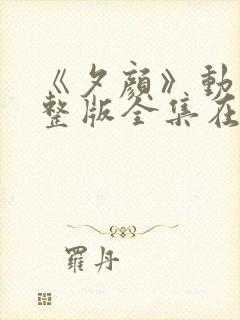 《夕顔》動
整版全集在
羅丹